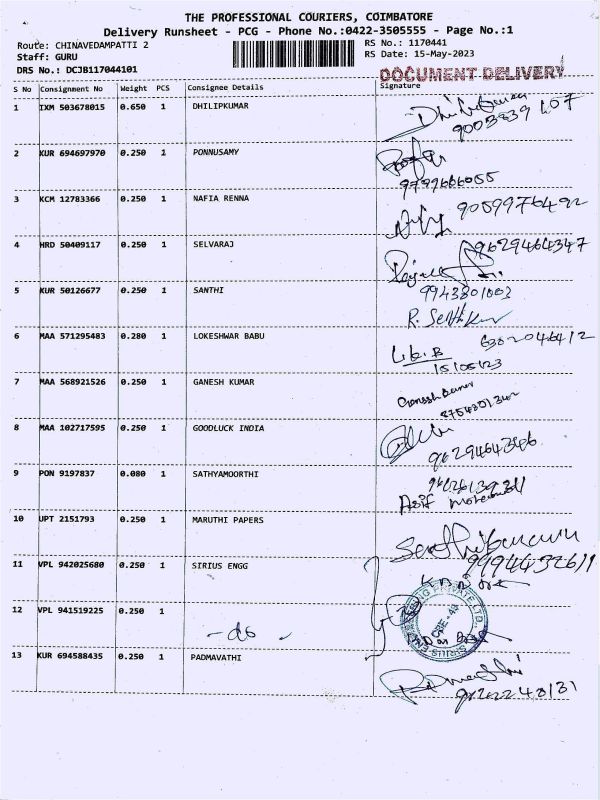 THE PROFESSIONAL COURIERS, COIMBATORE
Delivery Runsheet - PCG - Phone No.:0422-3505555 - Page No.:1
Route: CHINAVEDAMPATTI 2 RS No.: 1170441
Staff: GURU RS Date: 15-May-2023
DRS No.: DCJB117044101 DOCUMENT DELIVERY
S No Consignment No Weight PCS Consignee Details Signature
1 IXM 503678015 0.650 1 DHILIPKUMAR
2 KUR 694697970 0.250 1 PONNUSAMY
9799666055
3 KCM 12783366 0.250 1 NAFIA RENNA 9059976492
4 HRD 50409117 0.250 1 SELVARAJ 9629464347
9943801003
5 KUR 50126677 0.250 1 SANTHI
6 MAA 571295483 0.280 1 LOKESHWAR BABU 6382046412
15/05/23
7 MAA 568921526 0.250 1 GANESH KUMAR
8754801342
8 MAA 102717595 0.250 1 GOODLUCK INDIA
9629464346
9 PON 9197837 0.080 1 SATHYAMOORTHI
Asif Mohammed
10 UPT 2151793 0.250 1 MARUTHI PAPERS
9994432611
11 VPL 942025680 0.250 1 SIRIUS ENGG
12 VPL 941519225 0.250 1
- do -
13 KUR 694588435 0.250 1 PADMAVATHI